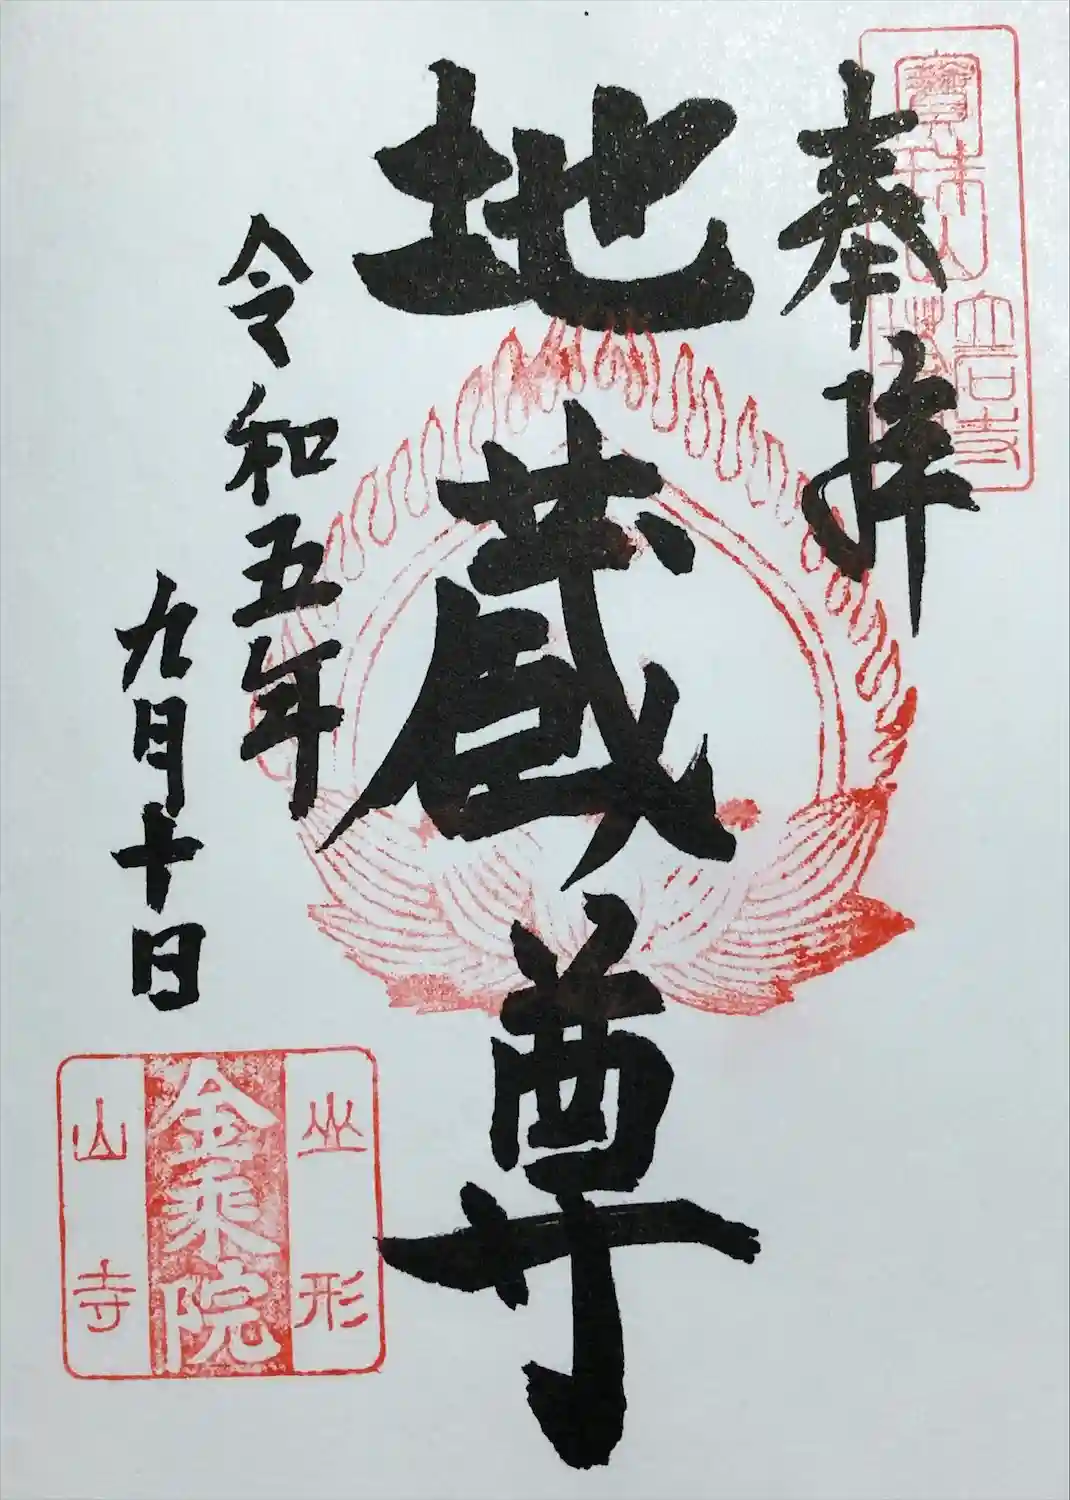 奉拝
地蔵尊
令和五年
九月十日
山形
金乘院
山寺